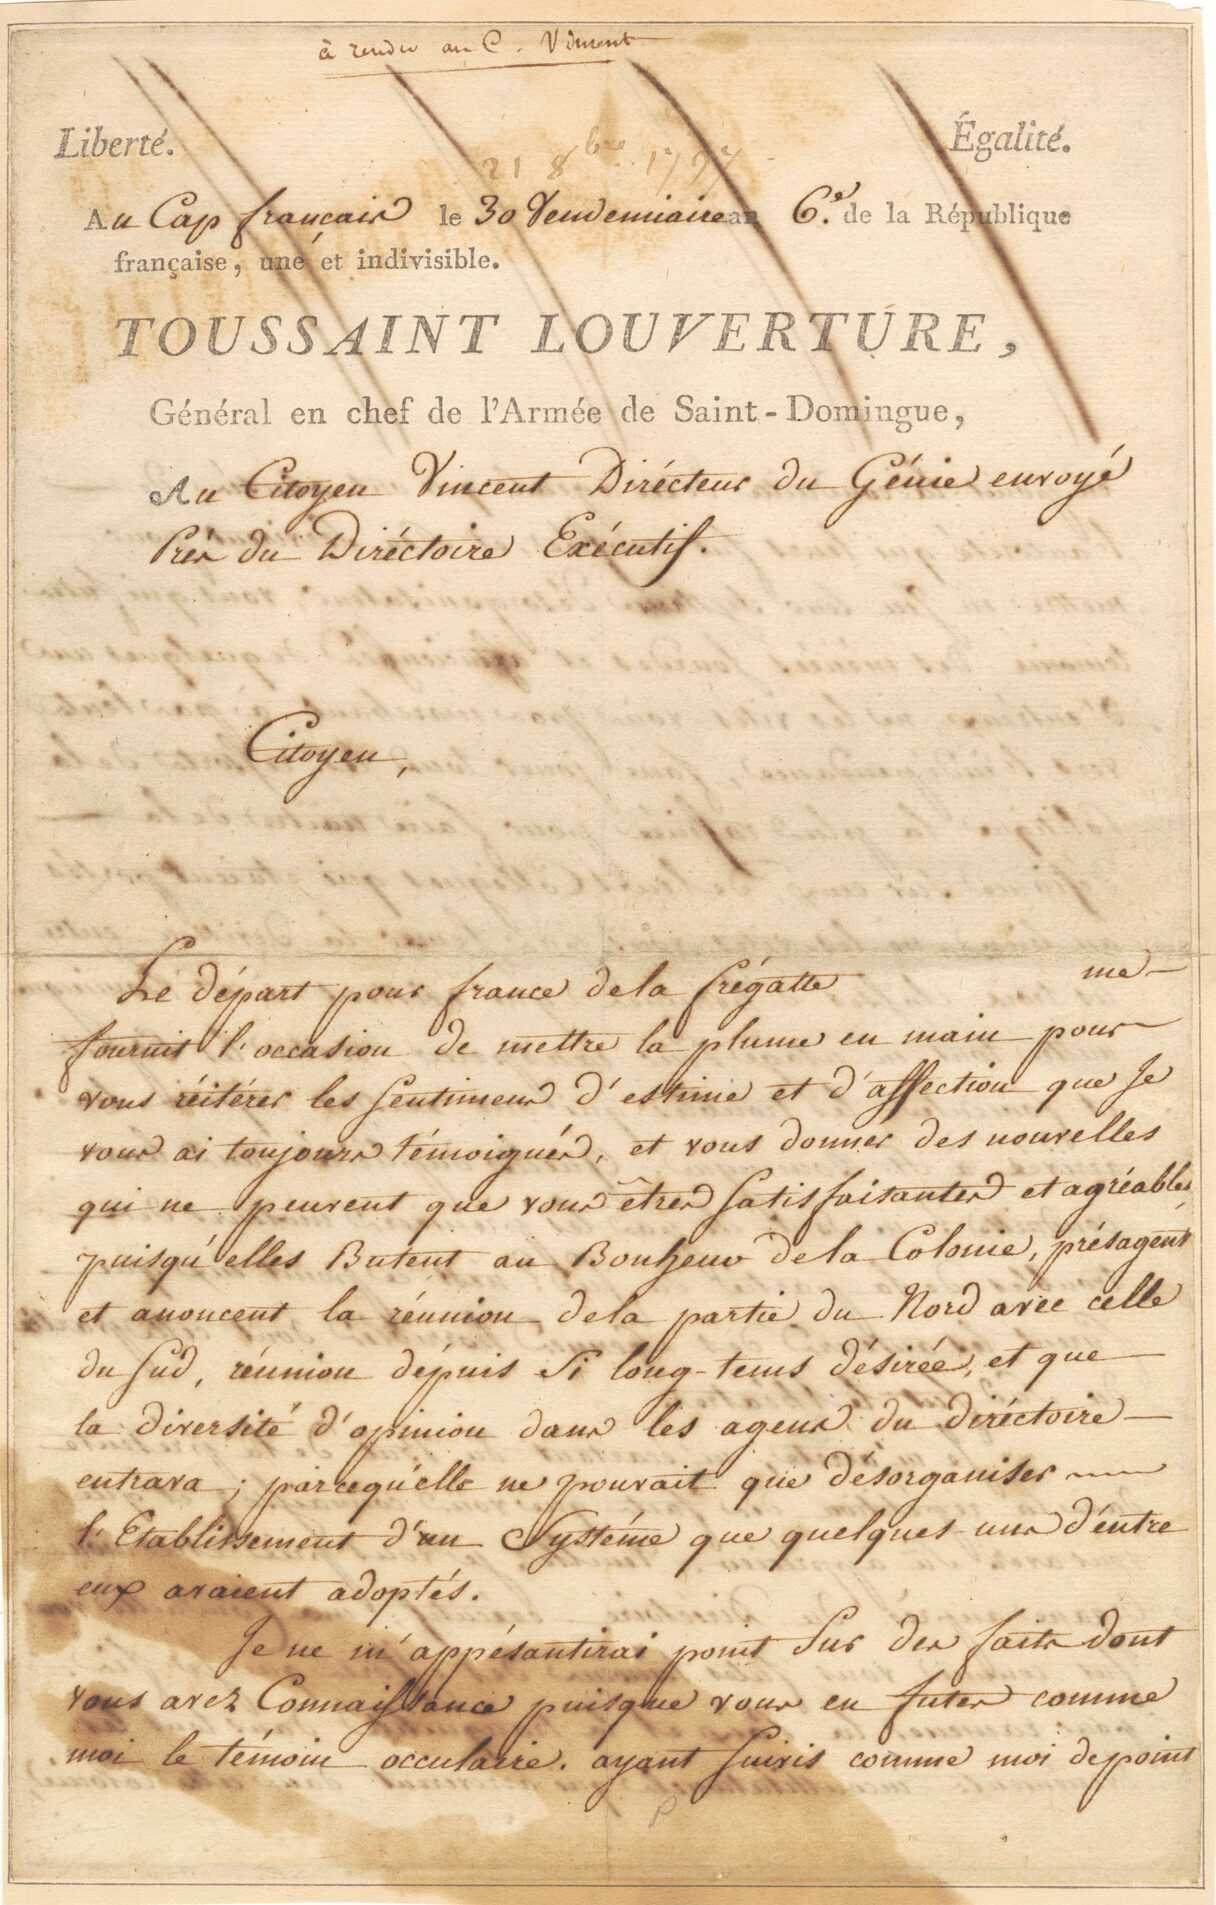 à rendre au C. Vincent
Liberté. Égalité.
21 8bre 1797
Au Cap français le 30 Vendemiaire an 6e. de la République
française, une et indivisible.
TOUSSAINT LOUVERTURE,
Général en chef de l'Armée de Saint-Domingue,
Au Citoyen Vincent Dirécteur du Génie envoyé
Près du Diréctoire Exécutif.
Citoyen,
Le départ pour france de la frégatte me
fournit l'occasion de mettre la plume en main pour
vous réitérer les sentimens d'estime et d'affection que Je
vous ai toujours témoignés, et vous donner des nouvelles
qui ne peuvent que vous êtres satisfaisantes et agréables
puisqu'elles Butent au Bonheur de la Colonie, présagent
et anoncent la réunion de la partie du Nord avec celle
du Sud, réunion dépuis Si long-tems désirée, et que
la diversité d'opinion dans les agens du diréctoire
entrava ; parcequ'elle ne pouvait que désorganiser
l'Etablissement d'un Systéme que quelques uns d'éntre
eux avaient adoptés.
Je ne m'appésantirai point Sur des faits dont
vous avez Connaissance puisque vous en futes comme
moi le témoin occulaire. ayant Suivis comme moi de point